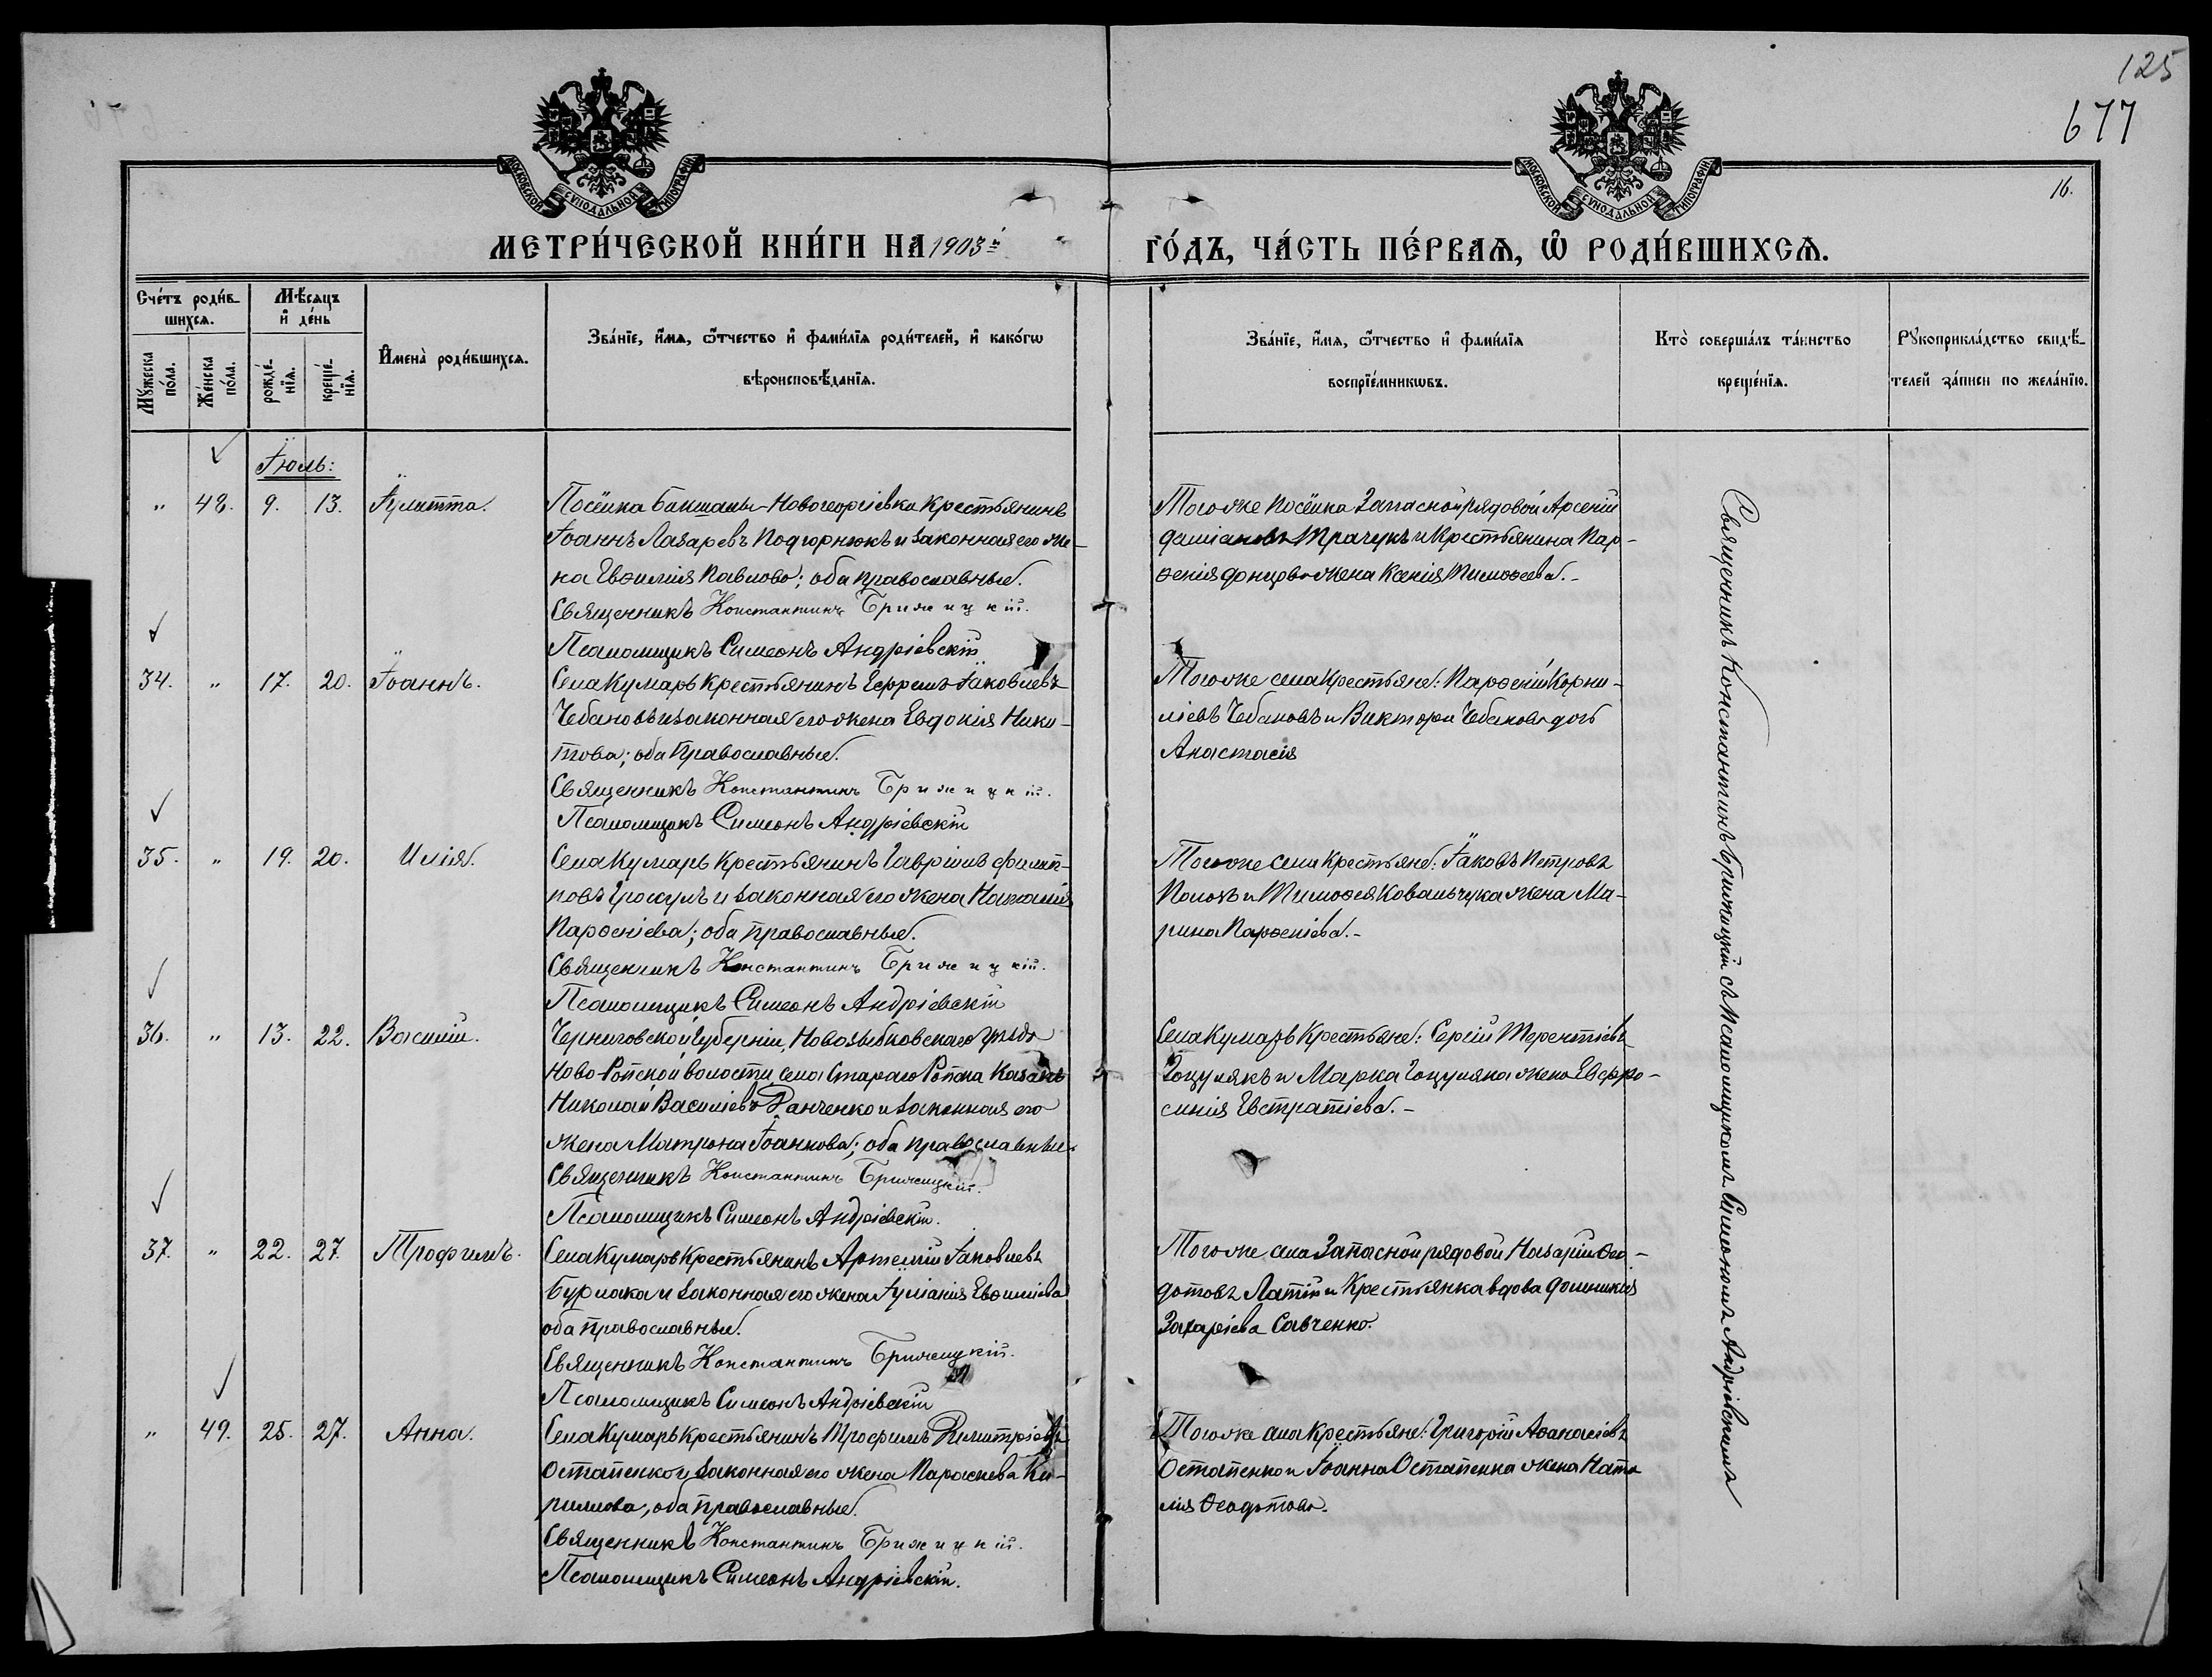 125
677
16.
МОСКОВСКОЙ СУНОДАЛЬНОЙ ТИПОГРАФІИ
МОСКОВСКОЙ СУНОДАЛЬНОЙ ТИПОГРАФІИ
МЕТРИ́ЧЕСКОЙ КНИ́ГИ НА 1903й
ГО́ДЪ, ЧА́СТЬ ПЕ́РВАѦ, Ѡ҆ РОДИ́ВШИХСѦ.
Сче́тъ роди́в-
шихсѧ.
Мѣ́сяцъ
и҆ де́нь
Мꙋ́жеска по́ла.
Же́нска по́ла.
рожде́-нїѧ.
креще́-нїѧ.
И҆мена̀ роди́вшихсѧ.
Зва́нїе, и҆́мѧ, ѻ҆́тчество и҆ фами́лїѧ роди́телей, и҆ како́гѡ
вѣроисповѣ́данїѧ.
Зва́нїе, и҆́мѧ, ѻ҆́тчество и҆ фами́лїѧ
воспрїе́мникѡвъ.
Кто̀ соверша́лъ та́инство
креще́нїѧ.
Рꙋкоприкла́дство свидѣ́-
телей за́писи по жела́нїю.
Іюль:
" 48. 9. 13. Іулитта.
Посёлка Бакшалы-Новогеоргіевка Крестьянинъ
Іоаннъ Лазаревъ Подгорнюкъ и законная его же-
на Евѳимія Павлова; оба православные.
Священникъ Константинъ Брижицкій.
Псаломщикъ Симеонъ Андріевскій
Тогоже посёлка Запасной рядовой Арсеній
Даміановъ Трачукъ и Крестьянина Пар-
ѳенія Донцова жена Ксенія Тимоѳеева.-
34. " 17. 20. Іоаннъ.
Села Кумаръ Крестьянинъ Ефремъ Іаковлевъ
Чебановъ и законная его жена Евдокія Ники-
това; оба православные.
Священникъ Константинъ Брижицкій.
Псаломщикъ Симеонъ Андріевскій
Тогоже села Крестьяне: Парѳеній Корни-
ліевъ Чебановъ и Виктора Чебанова дочь
Анастасія
35. " 19. 20. Илія.
Села Кумаръ Крестьянинъ Гавріилъ Филип-
повъ Гроссулъ и законная его жена Наталія
Парѳеніева; оба православные.
Священникъ Константинъ Брижицкій.
Псаломщикъ Симеонъ Андріевскій
Тогоже села Крестьяне: Іаковъ Петровъ
Поповъ и Тимоѳея Ковальчука жена Ма-
рина Парѳеніева.-
36. " 13. 22. Василій.
Черниговской Губерніи, Новозыбковскаго уѣзда
Ново-Ропской волости, села Стараго Ропска Казакъ
Николай Василіевъ Ранченко и законная его
жена Матрона Іоаннова; оба православные
Священникъ Константинъ Брижицкій.
Псаломщикъ Симеонъ Андріевскій.
Села Кумаръ Крестьяне: Сергій Терентіевъ
Гоцулякъ и Марка Гоцуляка жена Евфро-
синія Евстратіева.-
37. " 22. 27. Трофимъ.
Села Кумаръ Крестьянинъ Артемій Іаковлевъ
Бурлака и законная его жена Іуліанія Евѳиміева
оба православные.
Священникъ Константинъ Брижицкій.
Псаломщикъ Симеонъ Андріевскій
Тогоже села Запасной рядовой Назарій Ѳео-
дотовъ Лапій и Крестьянка вдова Домникія
Захаріева Савченко.
" 49. 25. 27. Анна.
Села Кумаръ Крестьянинъ Трофимъ Димитріевъ
Остапенко и законная его жена Параскева Ки-
риллова, оба православные.
Священникъ Константинъ Брижицкій.
Псаломщикъ Симеонъ Андріевскій.
Тогоже села Крестьяне: Григорій Аѳанасіевъ
Остапенко и Іоанна Остапенка жена Ната
лія Ѳеодотова.
Священникъ Константинъ Брижицкій съ Псаломщикомъ Симеономъ Андріевскимъ